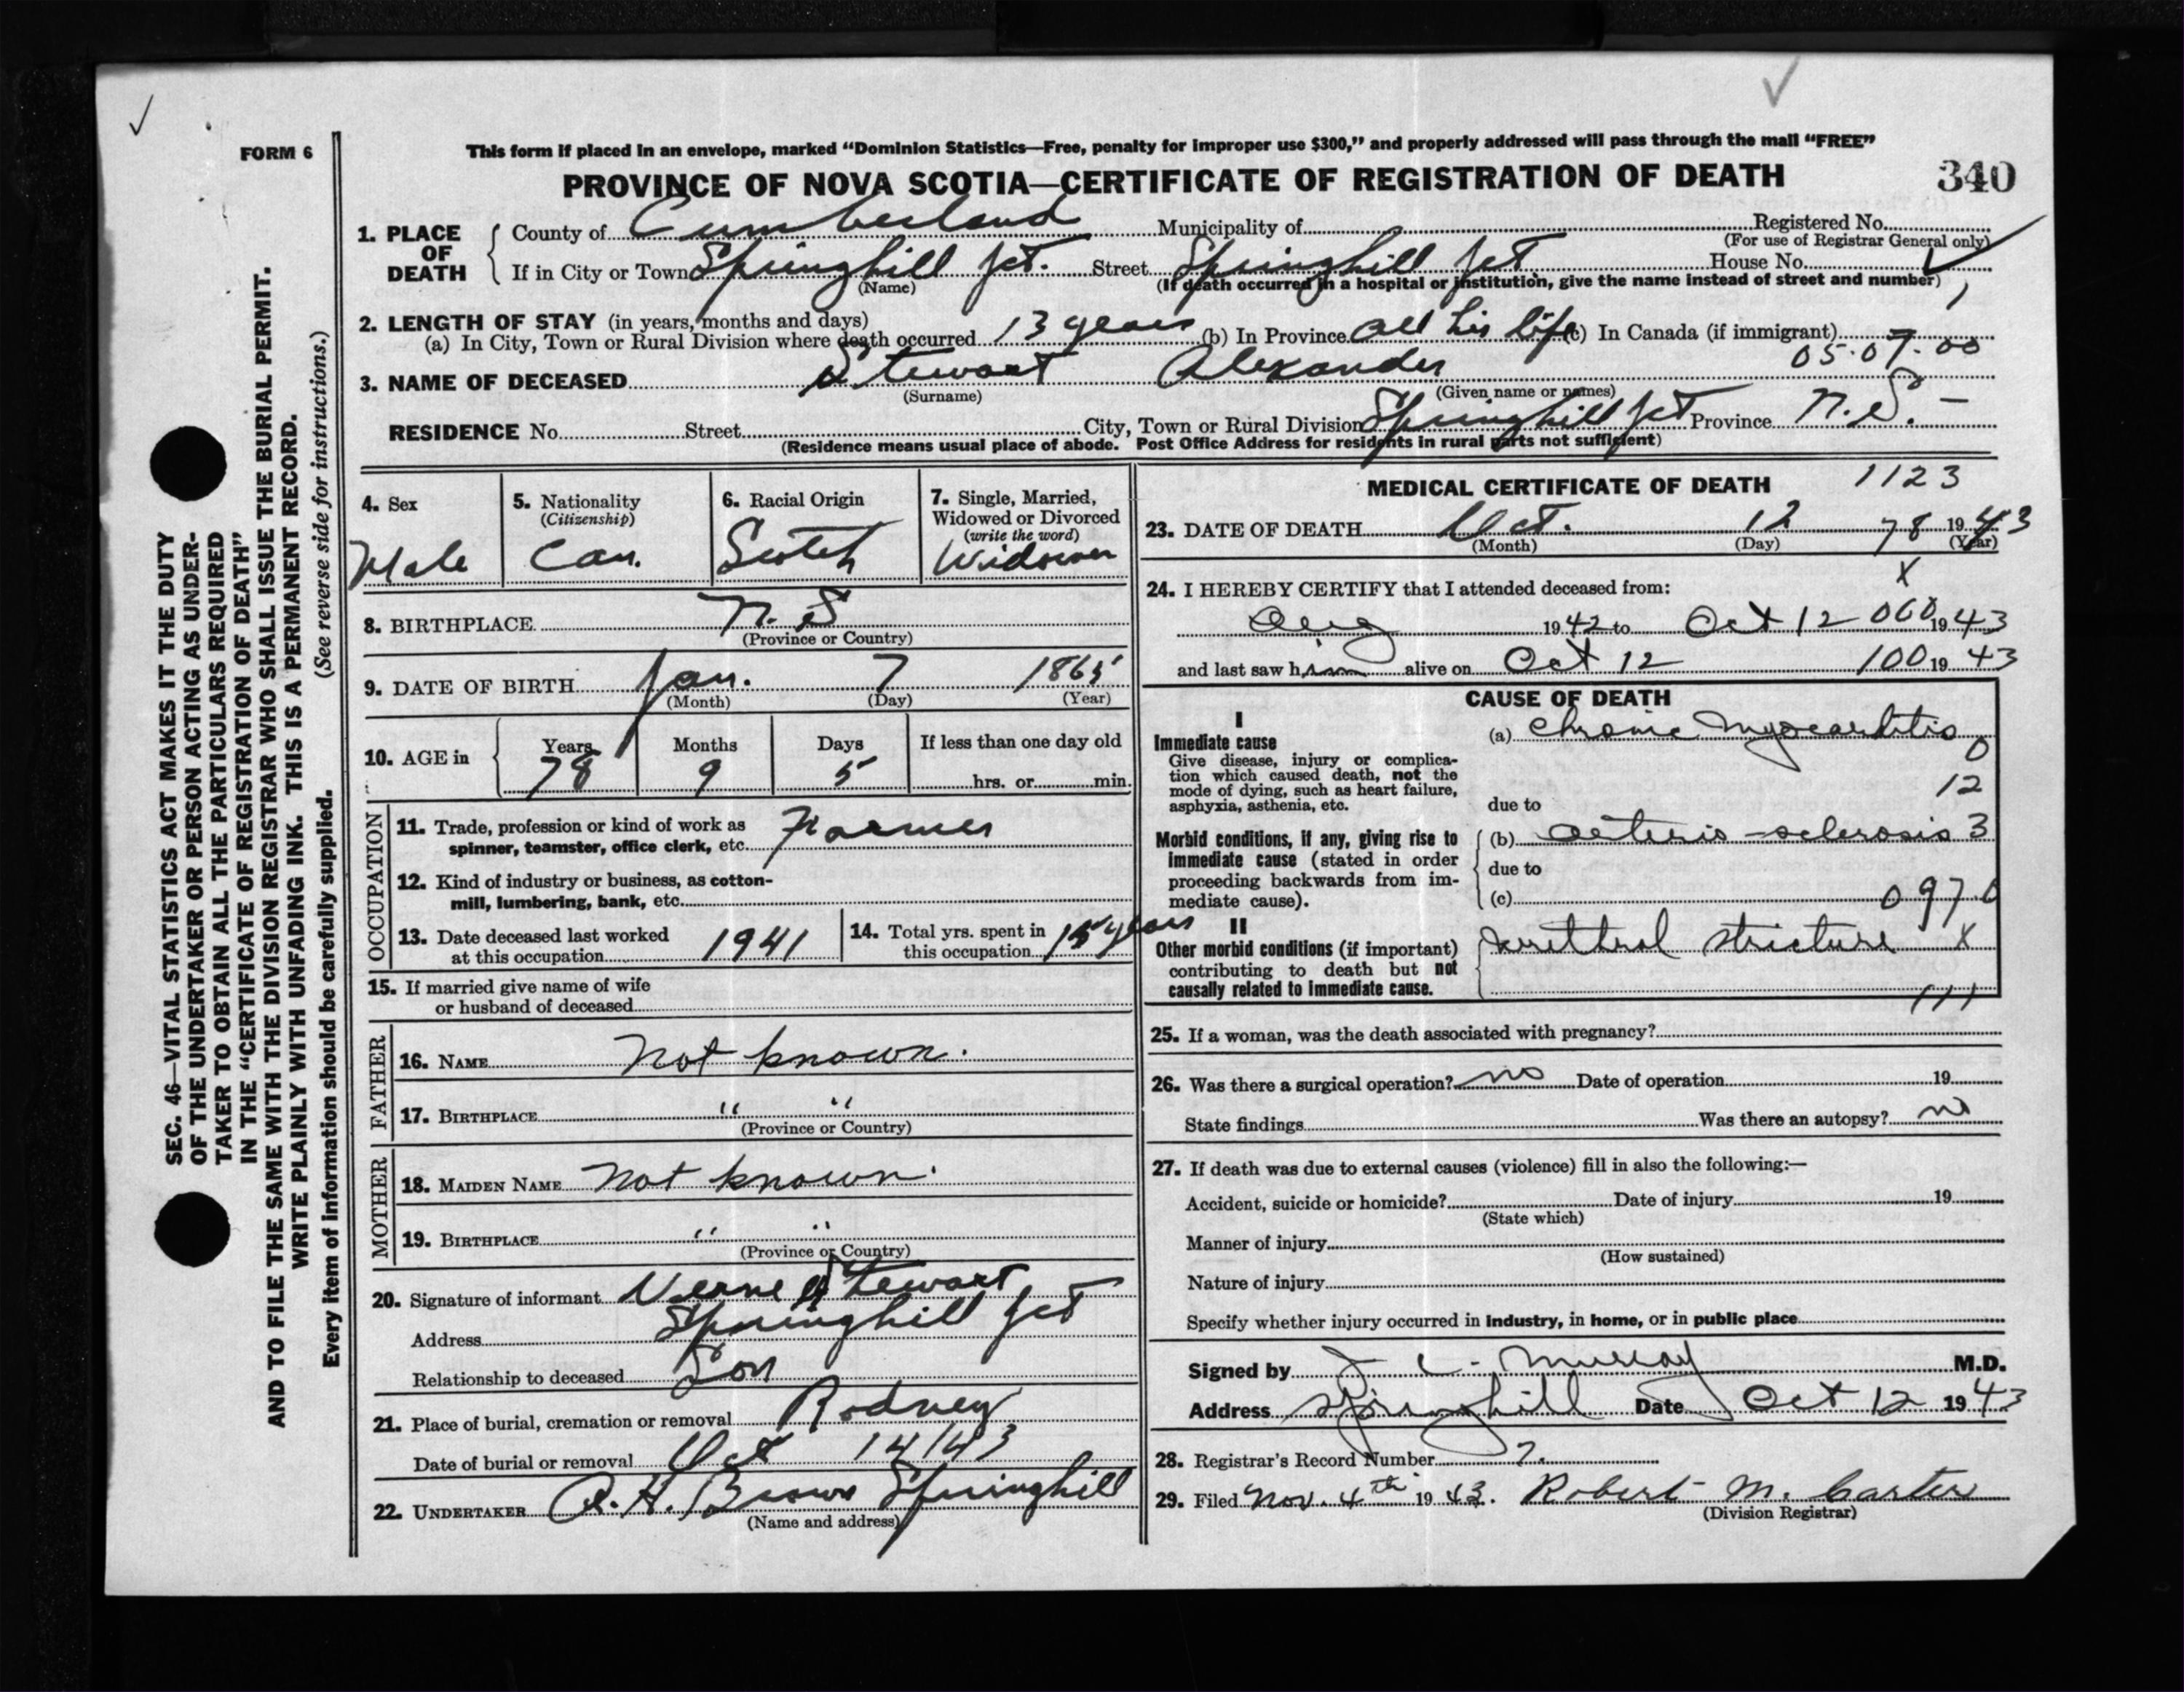 FORM 6
This form if placed in an envelope, marked “Dominion Statistics—Free, penalty for improper use $300,” and properly addressed will pass through the mail “FREE”
PROVINCE OF NOVA SCOTIA—CERTIFICATE OF REGISTRATION OF DEATH 340
1. PLACE OF DEATH
County of Cumberland Municipality of Registered No.
(For use of Registrar General only)
If in City or Town Springhill Jct. Street Springhill Jct House No.
(Name) (If death occurred in a hospital or institution, give the name instead of street and number)
2. LENGTH OF STAY (in years, months and days)
(a) In City, Town or Rural Division where death occurred 13 years (b) In Province All his life (c) In Canada (if immigrant)
05.07.00
3. NAME OF DECEASED Stewart Alexander
(Surname) (Given name or names)
RESIDENCE No. Street City, Town or Rural Division Springhill Jct Province N.S. —
(Residence means usual place of abode. Post Office Address for residents in rural parts not sufficient)
4. Sex
Male
5. Nationality
(Citizenship)
Can.
6. Racial Origin
Scotch
7. Single, Married,
Widowed or Divorced
(write the word)
Widower
8. BIRTHPLACE N.S
(Province or Country)
9. DATE OF BIRTH Jan. 7 1865
(Month) (Day) (Year)
10. AGE in
Years Months Days If less than one day old
78 9 5 hrs. or min.
OCCUPATION
11. Trade, profession or kind of work as
spinner, teamster, office clerk, etc. Farmer
12. Kind of industry or business, as cotton-
mill, lumbering, bank, etc.
13. Date deceased last worked
at this occupation 1941
14. Total yrs. spent in
this occupation years
15. If married give name of wife
or husband of deceased
FATHER
16. NAME Not known.
17. BIRTHPLACE " "
(Province or Country)
MOTHER
18. MAIDEN NAME Not known.
19. BIRTHPLACE " "
(Province or Country)
20. Signature of informant Verne Stewart
Address Springhill Jct
Relationship to deceased Son
21. Place of burial, cremation or removal Rodney
Date of burial or removal Oct 14/43
22. UNDERTAKER A. H. Brown Springhill
(Name and address)
MEDICAL CERTIFICATE OF DEATH 1123
23. DATE OF DEATH Oct. 12 78 1943
(Month) (Day) (Year)
X
24. I HEREBY CERTIFY that I attended deceased from:
Aug 1942 to Oct 12 060 1943
and last saw him alive on Oct 12 100 1943
CAUSE OF DEATH
I
Immediate cause
Give disease, injury or complica-
tion which caused death, not the
mode of dying, such as heart failure,
asphyxia, asthenia, etc.
(a) Chronic myocarditis
0
12
due to
Morbid conditions, if any, giving rise to
immediate cause (stated in order
proceeding backwards from im-
mediate cause).
(b) arterio-sclerosis 3
due to
(c) 097.0
II
Other morbid conditions (if important)
contributing to death but not
causally related to immediate cause.
urethral stricture X
111
25. If a woman, was the death associated with pregnancy?
26. Was there a surgical operation? no Date of operation 19
State findings Was there an autopsy? no
27. If death was due to external causes (violence) fill in also the following:—
Accident, suicide or homicide? Date of injury 19
(State which)
Manner of injury
(How sustained)
Nature of injury
Specify whether injury occurred in industry, in home, or in public place
Signed by J C. Murray M.D.
Address Springhill Date Oct 12 1943
28. Registrar's Record Number 7.
29. Filed Nov. 4th 1943. Robert M. Carter
(Division Registrar)
SEC. 46—VITAL STATISTICS ACT MAKES IT THE DUTY
OF THE UNDERTAKER OR PERSON ACTING AS UNDER-
TAKER TO OBTAIN ALL THE PARTICULARS REQUIRED
IN THE “CERTIFICATE OF REGISTRATION OF DEATH”
AND TO FILE THE SAME WITH THE DIVISION REGISTRAR WHO SHALL ISSUE THE BURIAL PERMIT.
WRITE PLAINLY WITH UNFADING INK. THIS IS A PERMANENT RECORD.
Every item of information should be carefully supplied. (See reverse side for instructions.)